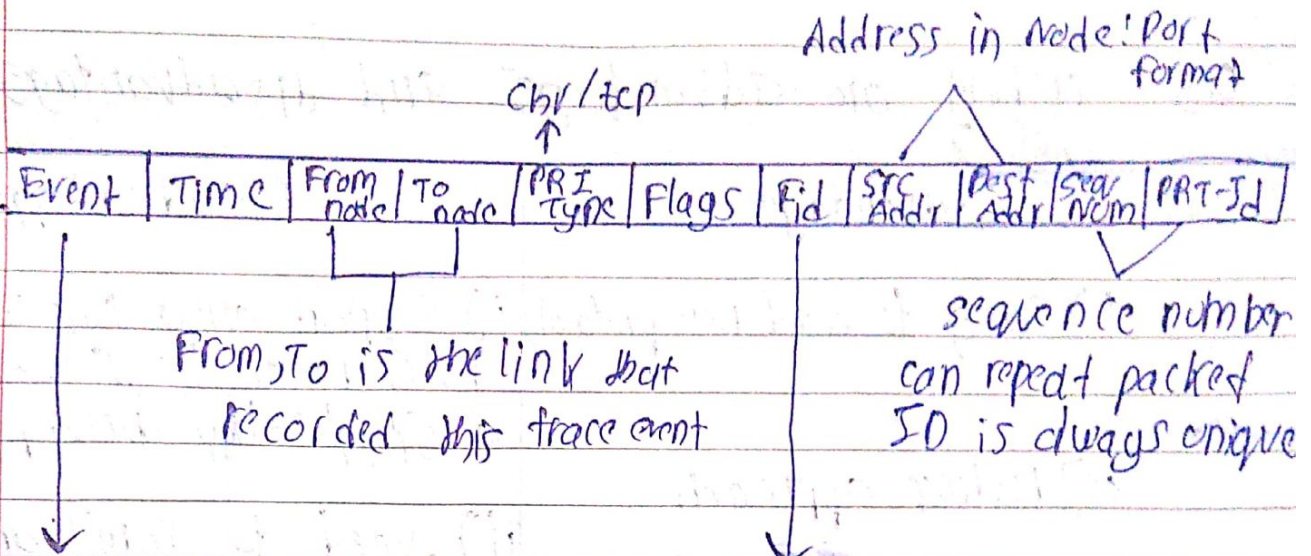 Address in Node: Port
format
Cbr/tcp
Event | Time | From node | To node | PRT Type | Flags | Fid | Src Addr | Dest Addr | Seq Num | PRT-Id
From, To is the link that
recorded this trace event
sequence number
can repeat packed
ID is always unique